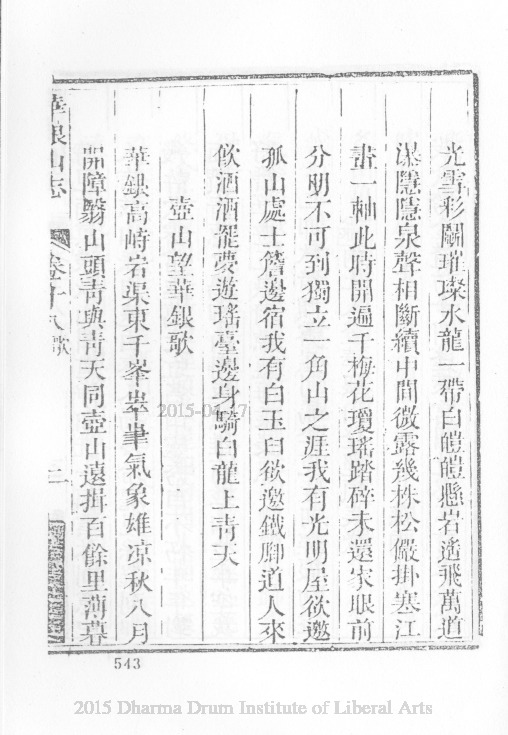 光雪彩鬭璀璨水龍一帶白皚皚懸岩遙飛萬道
瀑隱隱泉聲相斷續中間微露幾株松儼掛寒江
畫一軸此時開遍千梅花瓊瑤踏碎未還家眼前
分明不可到獨立一角山之涯我有光明屋欲邀
孤山處士簷邊宿我有白玉臼欲邀鐵腳道人來
飲酒酒罷夢遊瑤臺邊身騎白龍上青天
壺山望華銀歌
華銀高峙岩渠東千峯崒嵂氣象雄凉秋八月
開障翳山頭青與青天同壺山遠揖百餘里薄暮
華銀山志
卷十八歌
二
543
2015 Dharma Drum Institute of Liberal Arts